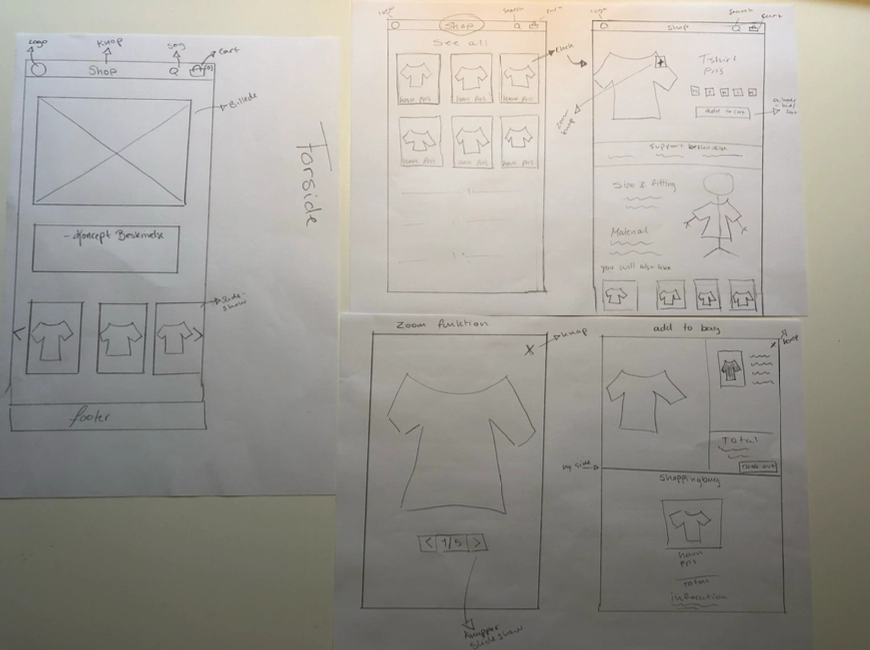 Logo
Knop
Søg
Cart
Shop
Billede
Torside
-Koncept Beskrivelse
Slide-
show
footer
Logo
Search
Cart
Shop
See all
Click
Navn Pris
Navn Pris
Navn Pris
Navn Pris
Navn Pris
Navn Pris
Logo
Search
Cart
Shop
T-shirt
Pris
add to cart
Zoom
knap
Support beskrivelse
Size & fitting
Material
you will also like
Zoom funktion
X
knap
< 1/5 >
knapper
slideshow
add to bag
x
Total
Check out
ny side
Shoppingbag
navn
pris
total
information